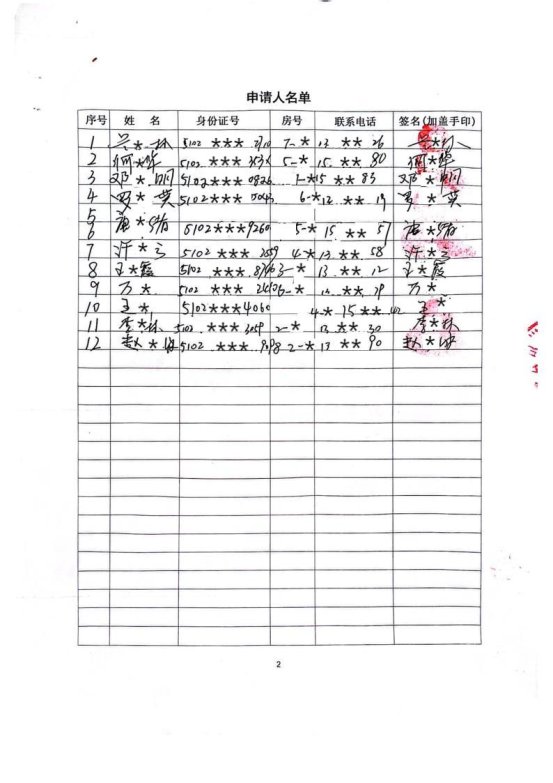 申请人名单
序号 姓 名 身份证号 房号 联系电话 签名(加盖手印)
1 吴*林 5102 *** 7-* 13 ** 26 吴*林
2 何*华 5102 *** 5-* 15 ** 80 何*华
3 邓*明 5102 *** 0826 1-* 15 ** 83 邓*明
4 *英 5102 *** 6-* 12 ** 19 *英
5
6 唐* 5102***9260 5-* 15 ** 57 唐*
7 许*云 5102 *** 4-* 13 ** 58 许*云
8 王*霞 5102 *** 3-* 13 ** 12 王*霞
9 万* 5102 *** ** 万*
10 王* 5102***4060 4-* 15 ** 王*
11 李*林 5102 *** 2-* 13 ** 30 李*林
12 赵* 5102 *** 2-* 13 ** 90 赵*
2